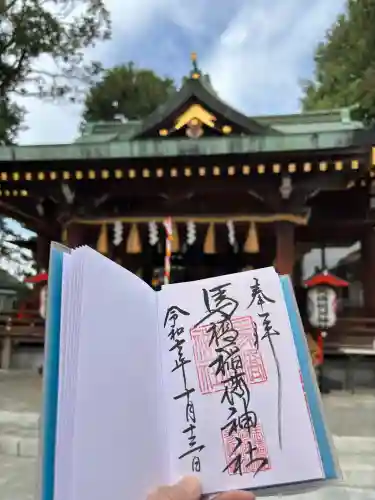 奉拝
馬橋稲荷神社
令和三年十月十三日